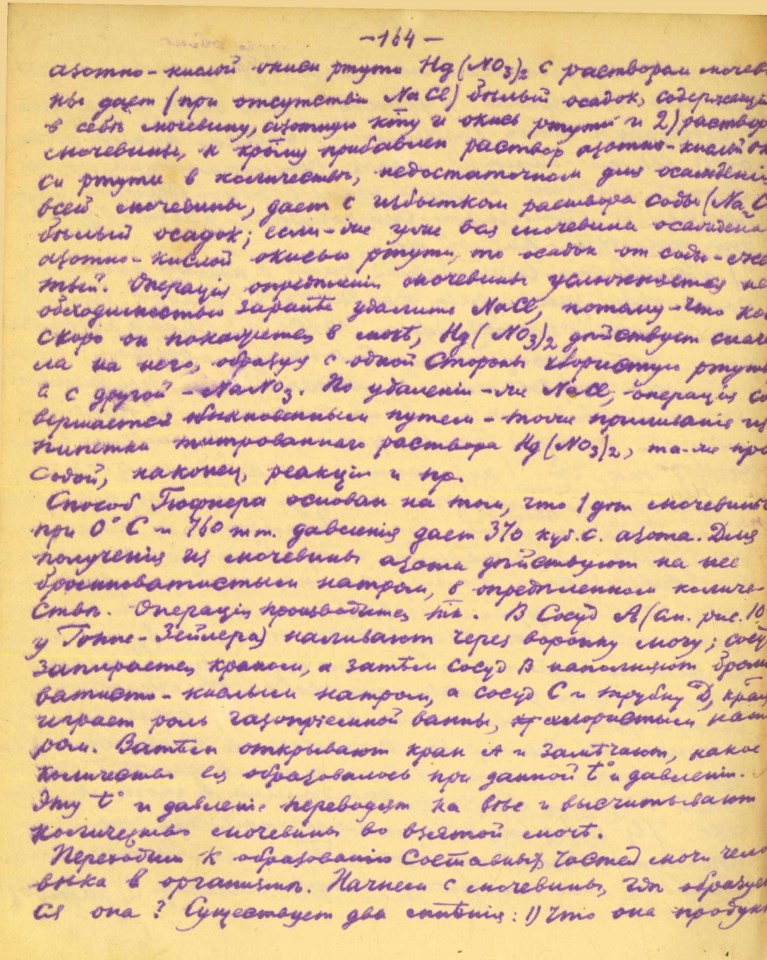 -164-
азотно-кислой окиси ртути Hg(NO3)2 с раствором мочеви
ны дает (при отсутствiи NaCl) бѣлый осадок, содержащiй
в себѣ мочевину, азотную кту и окись ртути и 2) раствор
мочевины, к кртму прибавлен раствор азотно-кислой ок
си ртути в количествѣ, недостаточном для осажденiя
всей мочевины, дает с избытком раствора соды (Na2C
бѣлый осадок; если-же уже вся мочевина осаждена
азотно-кислой окисью ртути, то осадок от соды-же
тый. Операцiя опредѣленiя мочевины усложняется не
обходимостью заранѣе удалить NaCl, потому-что ко
скоро он покажется в мочѣ, Hg(NO3)2 дѣйствует снача
ла на него, образуя с одной стороны хлористую ртуть
а с другой - NaNO3. По удаленiи-же NaCl, операцiя со
вершается обыкновенным путем - тоже приливанiе из
пипетки титрованного раствора Hg(NO3)2, та-же про
содой, наконец, реакцiя и пр.
Способ Гюфнера основан на том, что 1 grm мочевины
при 0°C и 760 mm. давленiя дает 370 куб. с. азота. Для
полученiя из мочевины азота дѣйствуют на нее
бромноватистым натром, в опредѣленном количе-
ствѣ. Операцiя производится так. В сосуд А (см. рис. 10
у Гоппе-Зейлера) наливают через воронку мочу; сосуд
запирается краном, а затѣм сосуд В наполняют бромно
ватисто-кислым натром, а сосуд С и трубку D,
играет роль газопрiемной ванны, хлористым нат
ром. Затѣм открывают кран А и замѣчают, какое
количество его образовалось при данной t° и давленiи.
Эту t° и давленiе переводят на вѣс и высчитывают
количество мочевины во взятой мочѣ.
Переходим к образованiю составных частей мочи чело
вѣка в организмѣ. Начнем с мочевины, гдѣ образует
ся она? Существует два мнѣнiя: 1) что она продукт